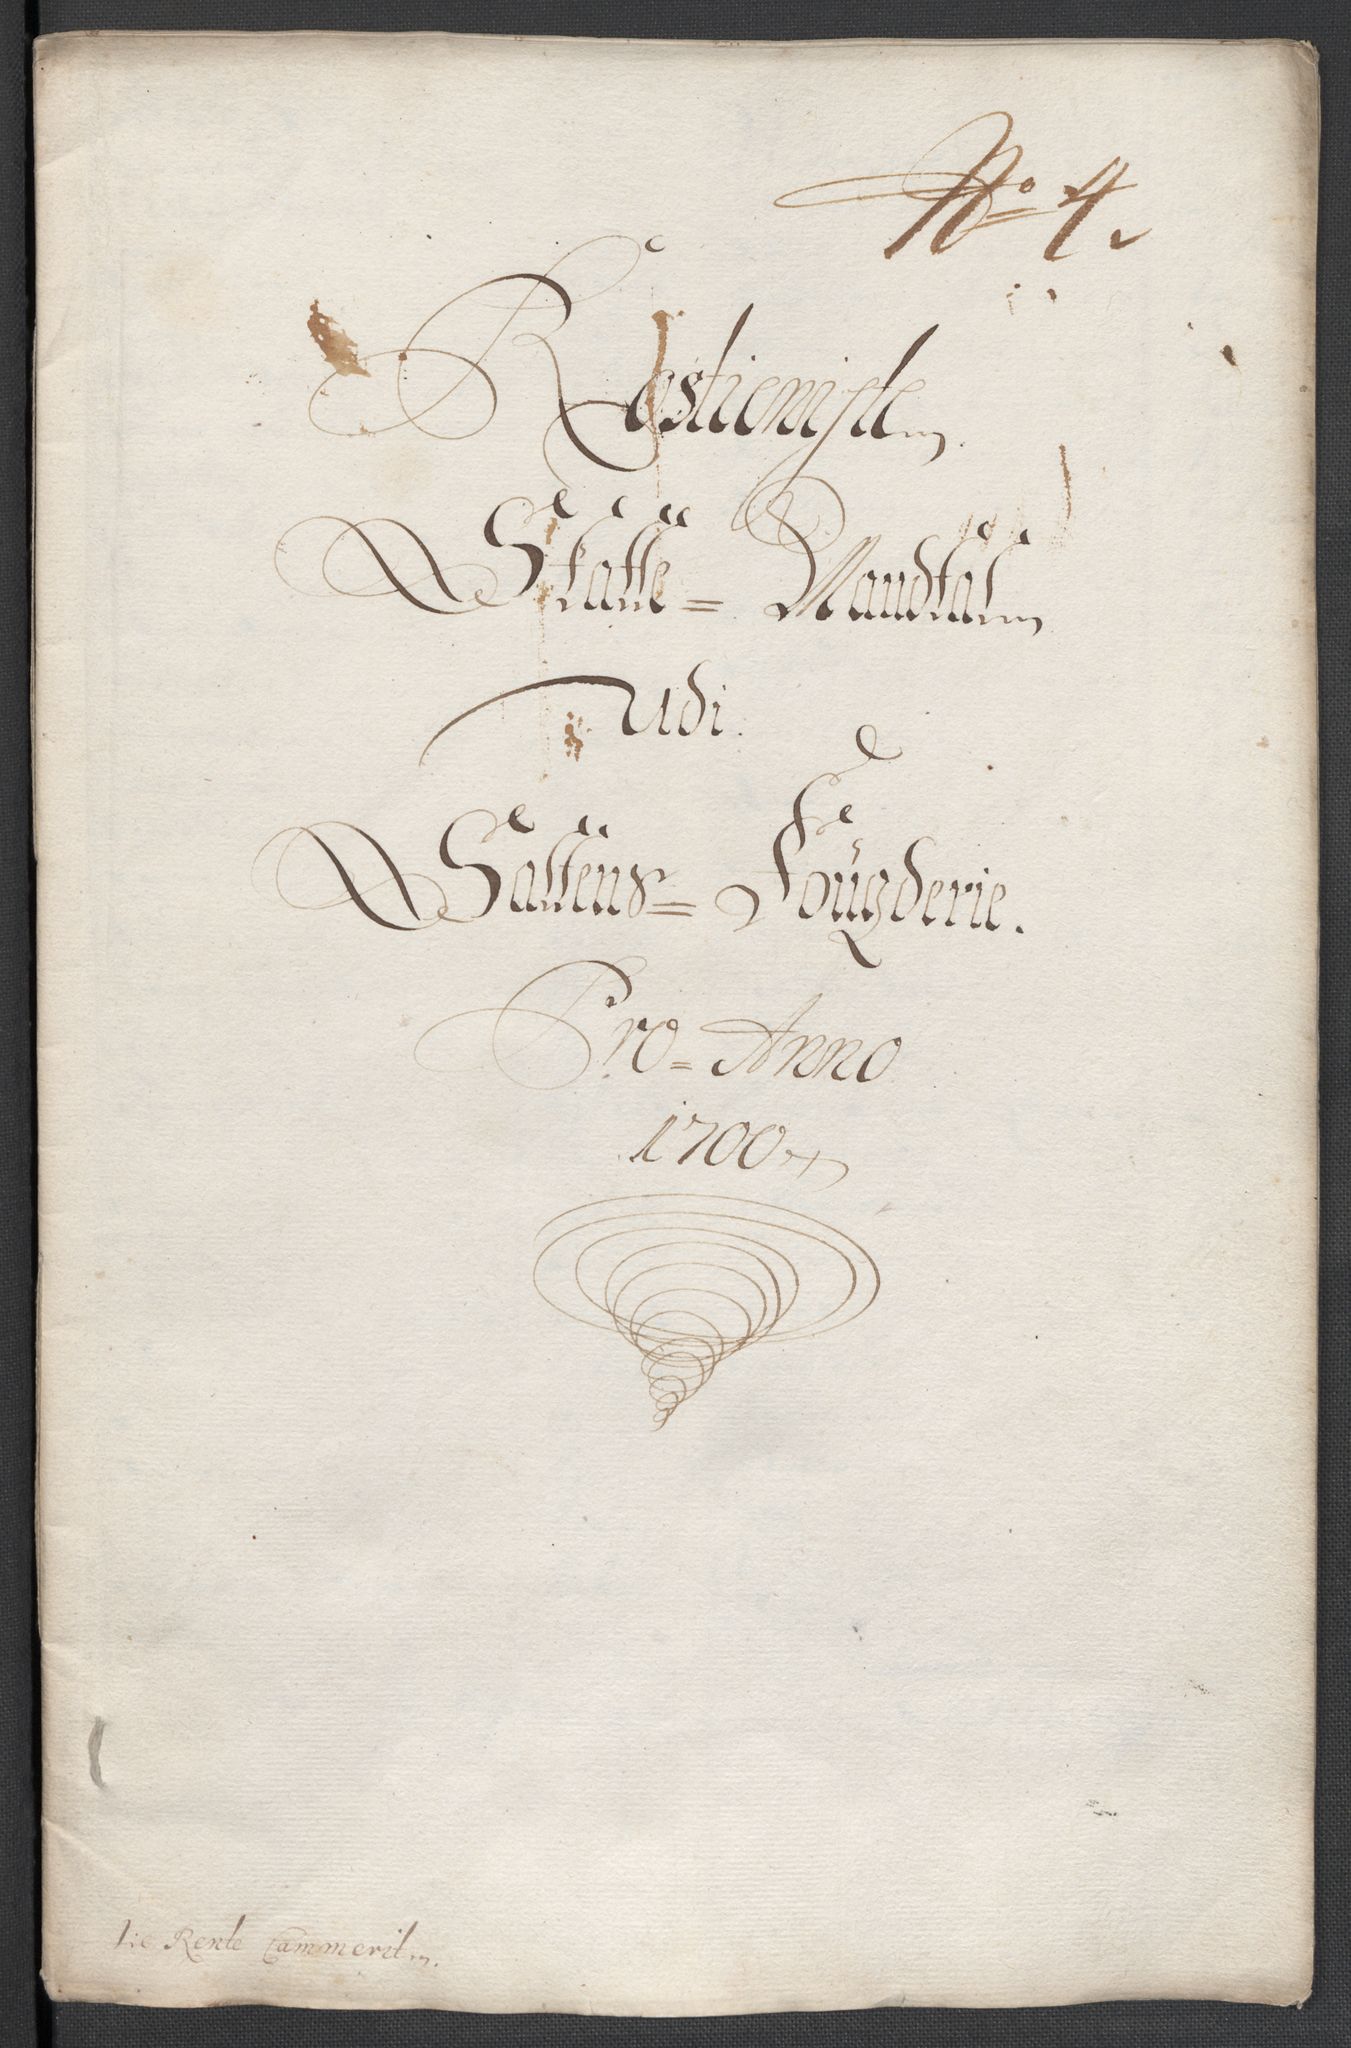 No 4.
Rostieniste
Skatte= Mandtal
Udi.
Saltens= Fougderie.
Pro= Anno
1700
Rente Cammerit